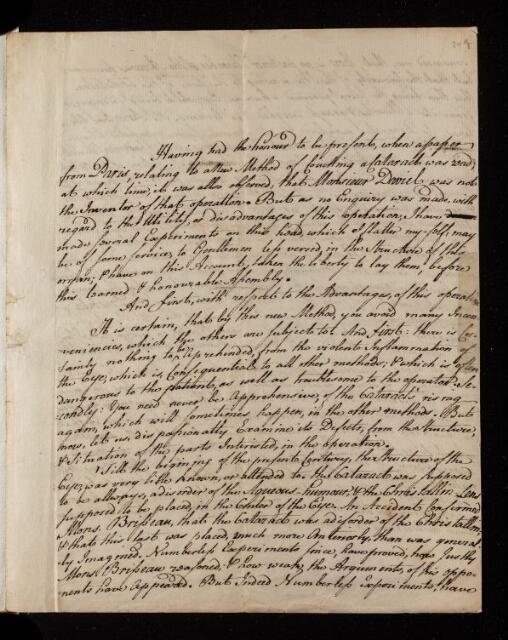 Having had the honour to be presente, when a paper
from Paris, relating to a New Method of Couching a Cataract was read,
at which time, it was allso observed, that Monsieur Daviel, was not
the Inventor of that operation. But as no Enquiry was made, with
regard to the Utility, or disadvantages of this operation, I have
made several Experiments on this head, which I flatter my self, may
be of some service, to Gentlemen less versed, in the Structure of this
organ; & have on this Account, taken the liberty to lay them, before
this learned & honourable Assembly.
And first, with respect to the Advantages, of this operation
It is certain, that by this new Method, you avoid many Incon
veniencies, which the others are subject to: And first: there is Cer
tainly nothing to be Apprehended, from the violent Inflammation of
the Eye, which is, Consequential to all other methods; & which is often
dangerous to the patient, as well as troublesome to the operator. Se-
condly: You need never be Apprehensive, of the Cataracts rising
again, which will sometimes happen, in the other methods. But
now, lets us dispassionately Examine its Defects, from the Structure,
& Situation of the parts Intrested, in the operation.
Till the begining of the presente Century, the Structure of the
Eye, was very little known, or attended to. the Cataract was supposed
to be allways, a disorder of the Aqueous humour; & the Christallin Lens
supposed to be placed, in the Center of the Eye. An Accident Confirmed
Mons. Brisseau, that the Cataract was a disorder of the Christallin;
& that this last was placed, much more Anteriorly, than was general
ly Imagined. Numberless Experiments since, have proved, how Justly
Monsr. Brisseau reasoned; & how weak, the Arguments, of his oppo-
nents have appeared. But Indeed Numberless Experiments, have